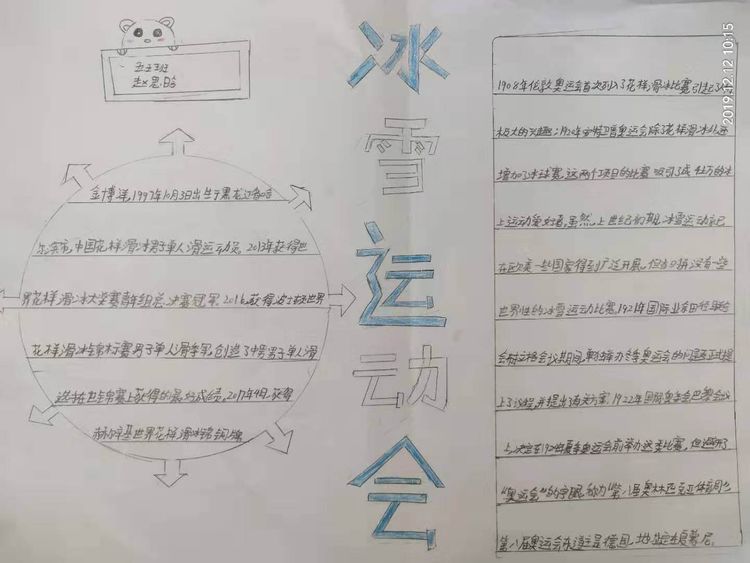 五五班
赵思晗
冰雪运动会
金博洋,1997年10月3日出生于黑龙江省哈
尔滨市,中国花样滑冰男子单人滑运动员。2013年获得世
界花样滑冰大奖赛青年组总决赛冠军。2016获得波士顿世界
花样滑冰锦标赛男子单人滑季军,创造了中国男子单人滑
选手在世锦赛上获得的最好成绩。2017年4月,获得
赫尔辛基世界花样滑冰锦标铜牌
1908年伦敦奥运会首次列入了花样滑冰比赛,引起了
极大的兴趣;1920年安特卫普奥运会除了花样滑冰外还
增加了冰球赛,这两个项目的比赛吸引了成千上万的冰
上运动爱好者,虽然,上世纪初期,冰雪运动就已
在欧美一些国家得到广泛开展,但当时没有一些
世界性的冰雪运动比赛,1921年国际业余田径联合
会布拉格会议期间,单独举办冬季奥运会的问题正式提
上了议程,并提出了有关方案,1922年国际奥委会巴黎会议
上,决定在1924年夏季奥运会前举办这类比赛,但避开了
“奥运会”的字眼,称为“第八届奥林匹克
第八届奥运会东道主是德国,地点定在夏蒙尼。
2019.12.12 10:15